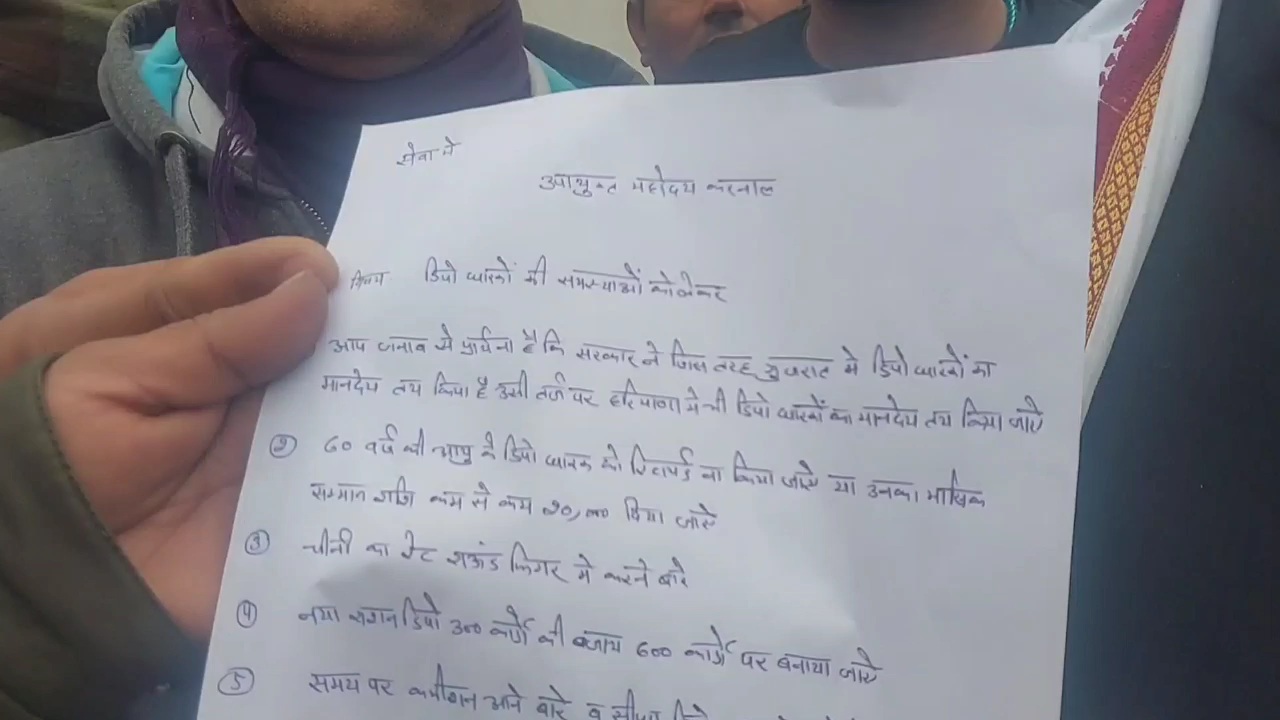 सेवा मे
उपायुक्त महोदय करनाल
विषय डिपो धारकों की समस्याओं को लेकर
आप जनाब से प्रार्थना है कि सरकार ने जिस तरह गुजरात मे डिपो धारकों का
मानदेय तय किया है उसी तर्ज पर हरियाणा मे भी डिपो धारकों का मानदेय तय किया जाऐ
② 60 वर्ष की आयु के डिपो धारक को रिटायर्ड ना किया जाऐ या उनका मासिक
सम्मान राशि कम से कम २०,००० दिया जाऐ
③ चीनी का रेट राऊंड फिगर मे करने बारे
④ नया राशन डिपो 300 कार्ड की बजाय 600 कार्ड पर बनाया जाऐ
⑤ समय पर कमीशन आने बारे व